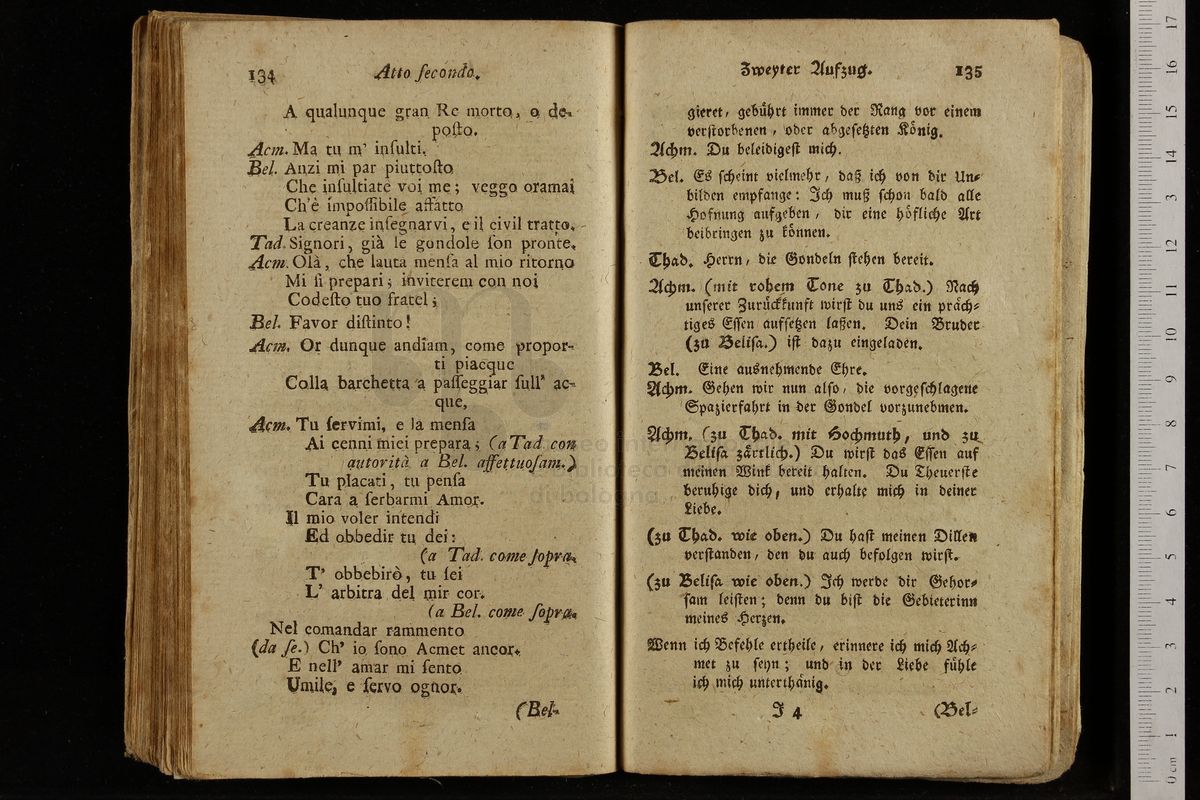 134 Atto ſecondo.
A qualunque gran Re morto, o de-
poſto.
Acm. Ma tu m' inſulti.
Bel. Anzi mi par piuttoſto
Che inſultiate voi me; veggo oramai
Ch'è impoſſibile affatto
La creanze inſegnarvi, e il civil tratto.
Tad. Signori, già le gondole ſon pronte.
Acm. Olà, che lauta menſa al mio ritorno
Mi ſi prepari; inviterem con noi
Codeſto tuo fratel;
Bel. Favor diſtinto!
Acm. Or dunque andiam, come propor-
ti piacque
Colla barchetta a paſſeggiar ſull' ac-
que,
Acm. Tu ſervimi, e la menſa
Ai cenni miei prepara; (a Tad con
autorità a Bel. affettuoſam.)
Tu placati, tu penſa
Cara a ſerbarmi Amor.
Il mio voler intendi
Ed obbedir tu dei:
(a Tad. come ſopra.
T' obbebirò, tu ſei
L' arbitra del mir cor.
(a Bel. come ſopra.
Nel comandar rammento
(da ſe.) Ch' io ſono Acmet ancor.
E nell' amar mi ſento
Umile, e ſervo ognor.
(Bel-
Zweyter Aufzug. 135
gieret, gebührt immer der Rang vor einem
verſtorbenen, oder abgeſetzten König.
Achm. Du beleidigeſt mich.
Bel. Es ſcheint vielmehr, daß ich von dir Un-
bilden empfange: Ich muß ſchon bald alle
Hofnung aufgeben, dir eine höfliche Art
beibringen zu können.
Thad. Herrn, die Gondeln ſtehen bereit.
Achm. (mit rohem Tone zu Thad.) Nach
unſerer Zurückkunft wirſt du uns ein präch-
tiges Eſſen aufſetzen laßen. Dein Bruder
(zu Beliſa.) iſt dazu eingeladen.
Bel. Eine ausnehmende Ehre.
Achm. Gehen wir nun alſo, die vorgeſchlagene
Spazierfahrt in der Gondel vorzunehmen.
Achm. (zu Thad. mit Hochmuth, und zu
Beliſa zärtlich.) Du wirſt das Eſſen auf
meinen Wink bereit halten. Du Theuerſte
beruhige dich, und erhalte mich in deiner
Liebe.
(zu Thad. wie oben.) Du haſt meinen Dillen
verſtanden, den du auch befolgen wirſt.
(zu Beliſa wie oben.) Ich werde dir Gehor-
ſam leiſten; denn du biſt die Gebieterinn
meines Herzen.
Wenn ich Befehle ertheile, erinnere ich mich Ach-
met zu ſeyn; und in der Liebe fühle
ich mich unterthänig.
J 4 (Bel-
biblioteca
di bologna
0 cm 1 2 3 4 5 6 7 8 9 10 11 12 13 14 15 16 17